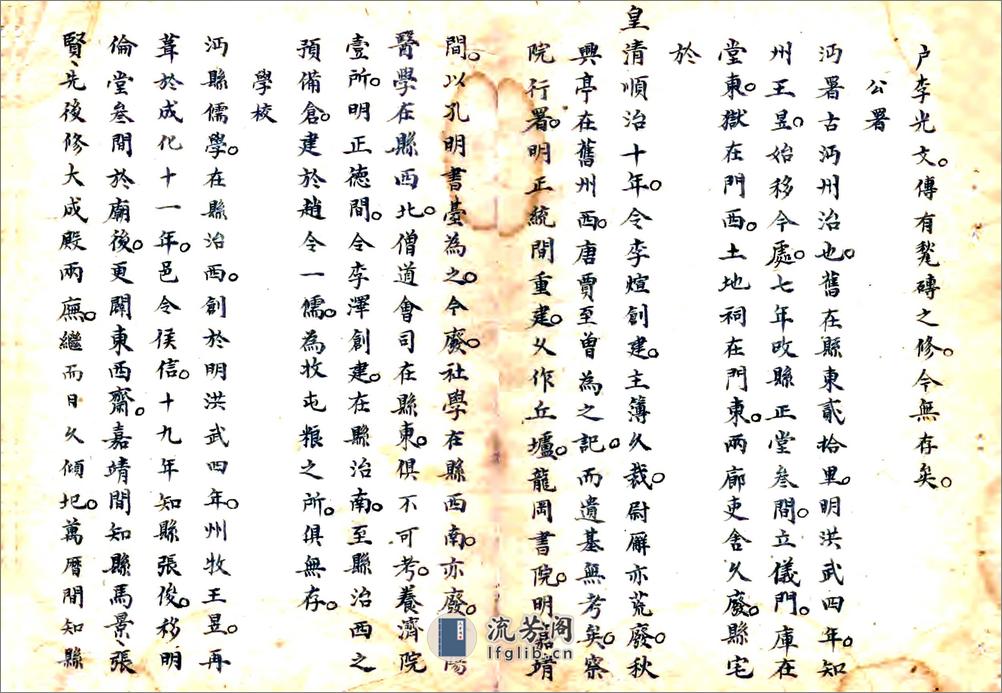 户李光文。傳有甃磚之修。今無存矣。
公署
沔署古沔州治也。舊在縣東貳拾里。明洪武四年。知
州王昱。始移今處。七年改縣正堂叁間。立儀門。庫在
堂東。獄在門西。土地祠在門東。兩廊吏舍久廢。縣宅
於
皇清順治十年。令李煊創建。主簿久裁。尉廨亦荒廢。秋
興亭在舊州西。唐賈至曾為之記。而遺基無考矣。察
院行署。明正統間重建。久作丘壚。龍岡書院。明嘉靖
間。以孔明書臺為之。今廢。社學在縣西南。亦廢。陽
醫學在縣西北。僧道會司在縣東。俱不可考。養濟院
壹所。明正德間。令李澤創建。在縣治南。至縣治西之
預備倉。建於趙令一儒。為牧屯粮之所。俱無存。
學校
沔縣儒學。在縣治西。創於明洪武四年。州牧王昱。再
葺於成化十一年。邑令侯信。十九年知縣張俊。移明
倫堂叁間於廟後。更闢東西齋。嘉靖間知縣馬景、張
賢、先後修大成殿兩廡。繼而日久傾圮。萬曆間知縣
流芳阁
lfglib.cn